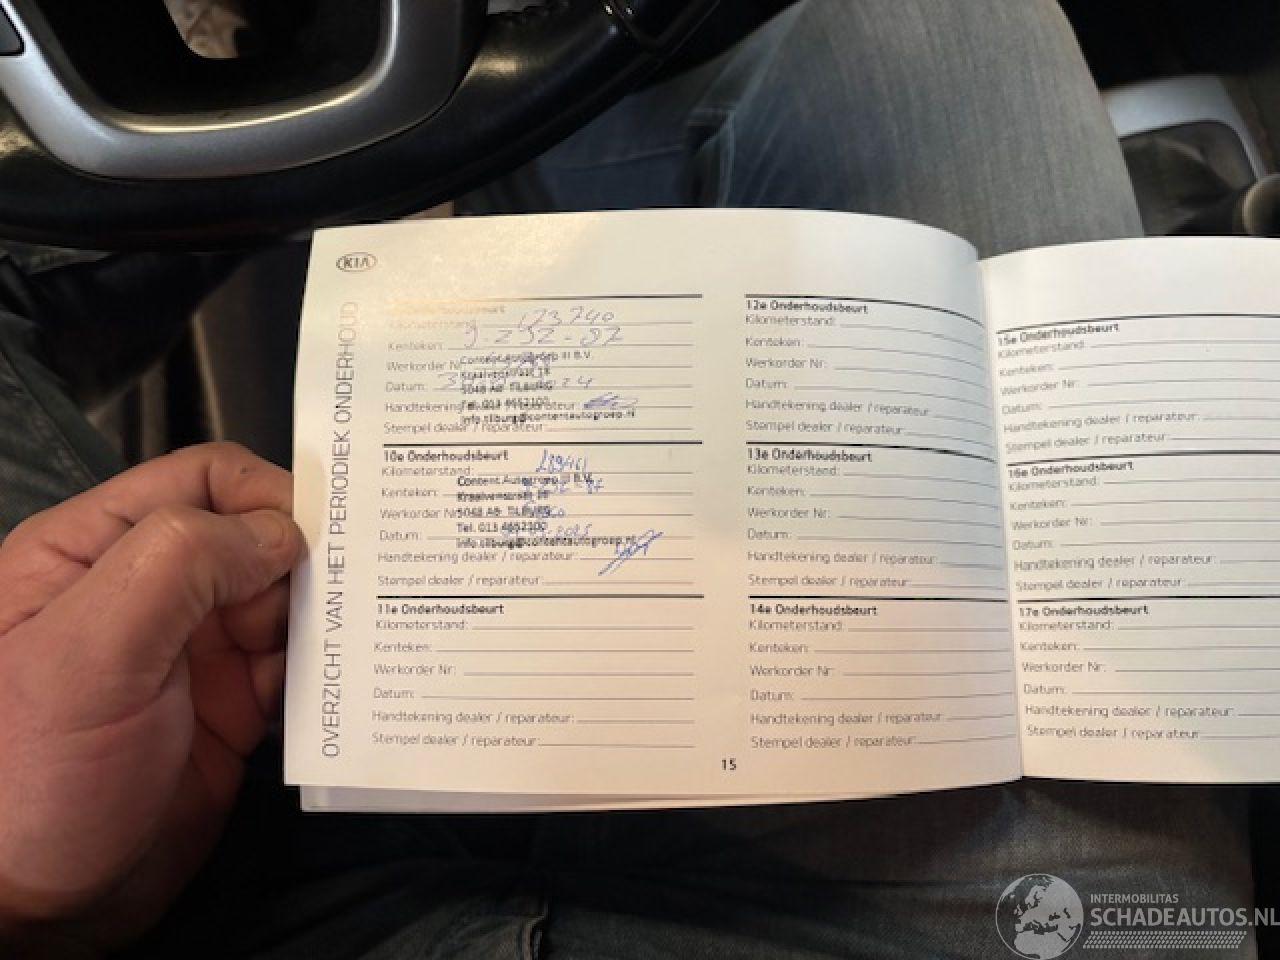 KIA
OVERZICHT VAN HET PERIODIEK ONDERHOUD
Kilometerstand: 173740
Kenteken:
Werkorder Nr:
Datum:
Handtekening dealer / reparateur:
Stempel dealer / reparateur:
Content Autogroep III B.V.
Kraaivenstraat 18
5048 AB TILBURG
Tel. 013 4652100
info.tilburg@contentautogroep.nl
10e Onderhoudsbeurt
Kilometerstand: 189461
Kenteken:
Werkorder Nr:
Datum:
Handtekening dealer / reparateur:
Stempel dealer / reparateur:
Content Autogroep III B.V.
Kraaivenstraat 18
5048 AB TILBURG
Tel. 013 4652100
info.tilburg@contentautogroep.nl
11e Onderhoudsbeurt
Kilometerstand:
Kenteken:
Werkorder Nr:
Datum:
Handtekening dealer / reparateur:
Stempel dealer / reparateur:
12e Onderhoudsbeurt
Kilometerstand:
Kenteken:
Werkorder Nr:
Datum:
Handtekening dealer / reparateur:
Stempel dealer / reparateur:
13e Onderhoudsbeurt
Kilometerstand:
Kenteken:
Werkorder Nr:
Datum:
Handtekening dealer / reparateur:
Stempel dealer / reparateur:
14e Onderhoudsbeurt
Kilometerstand:
Kenteken:
Werkorder Nr:
Datum:
Handtekening dealer / reparateur:
Stempel dealer / reparateur:
15
15e Onderhoudsbeurt
Kilometerstand:
Kenteken:
Werkorder Nr:
Datum:
Handtekening dealer / reparateur:
Stempel dealer / reparateur:
16e Onderhoudsbeurt
Kilometerstand:
Kenteken:
Werkorder Nr:
Datum:
Handtekening dealer / reparateur:
Stempel dealer / reparateur:
17e Onderhoudsbeurt
Kilometerstand:
Kenteken:
Werkorder Nr:
Datum:
Handtekening dealer / reparateur:
Stempel dealer / reparateur:
INTERMOBILITAS
SCHADEAUTOS.NL